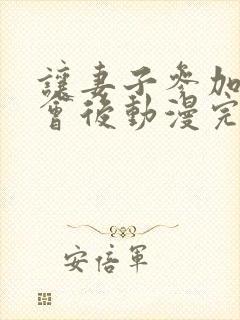 讓妻子參加
會後動漫完
安倍軍